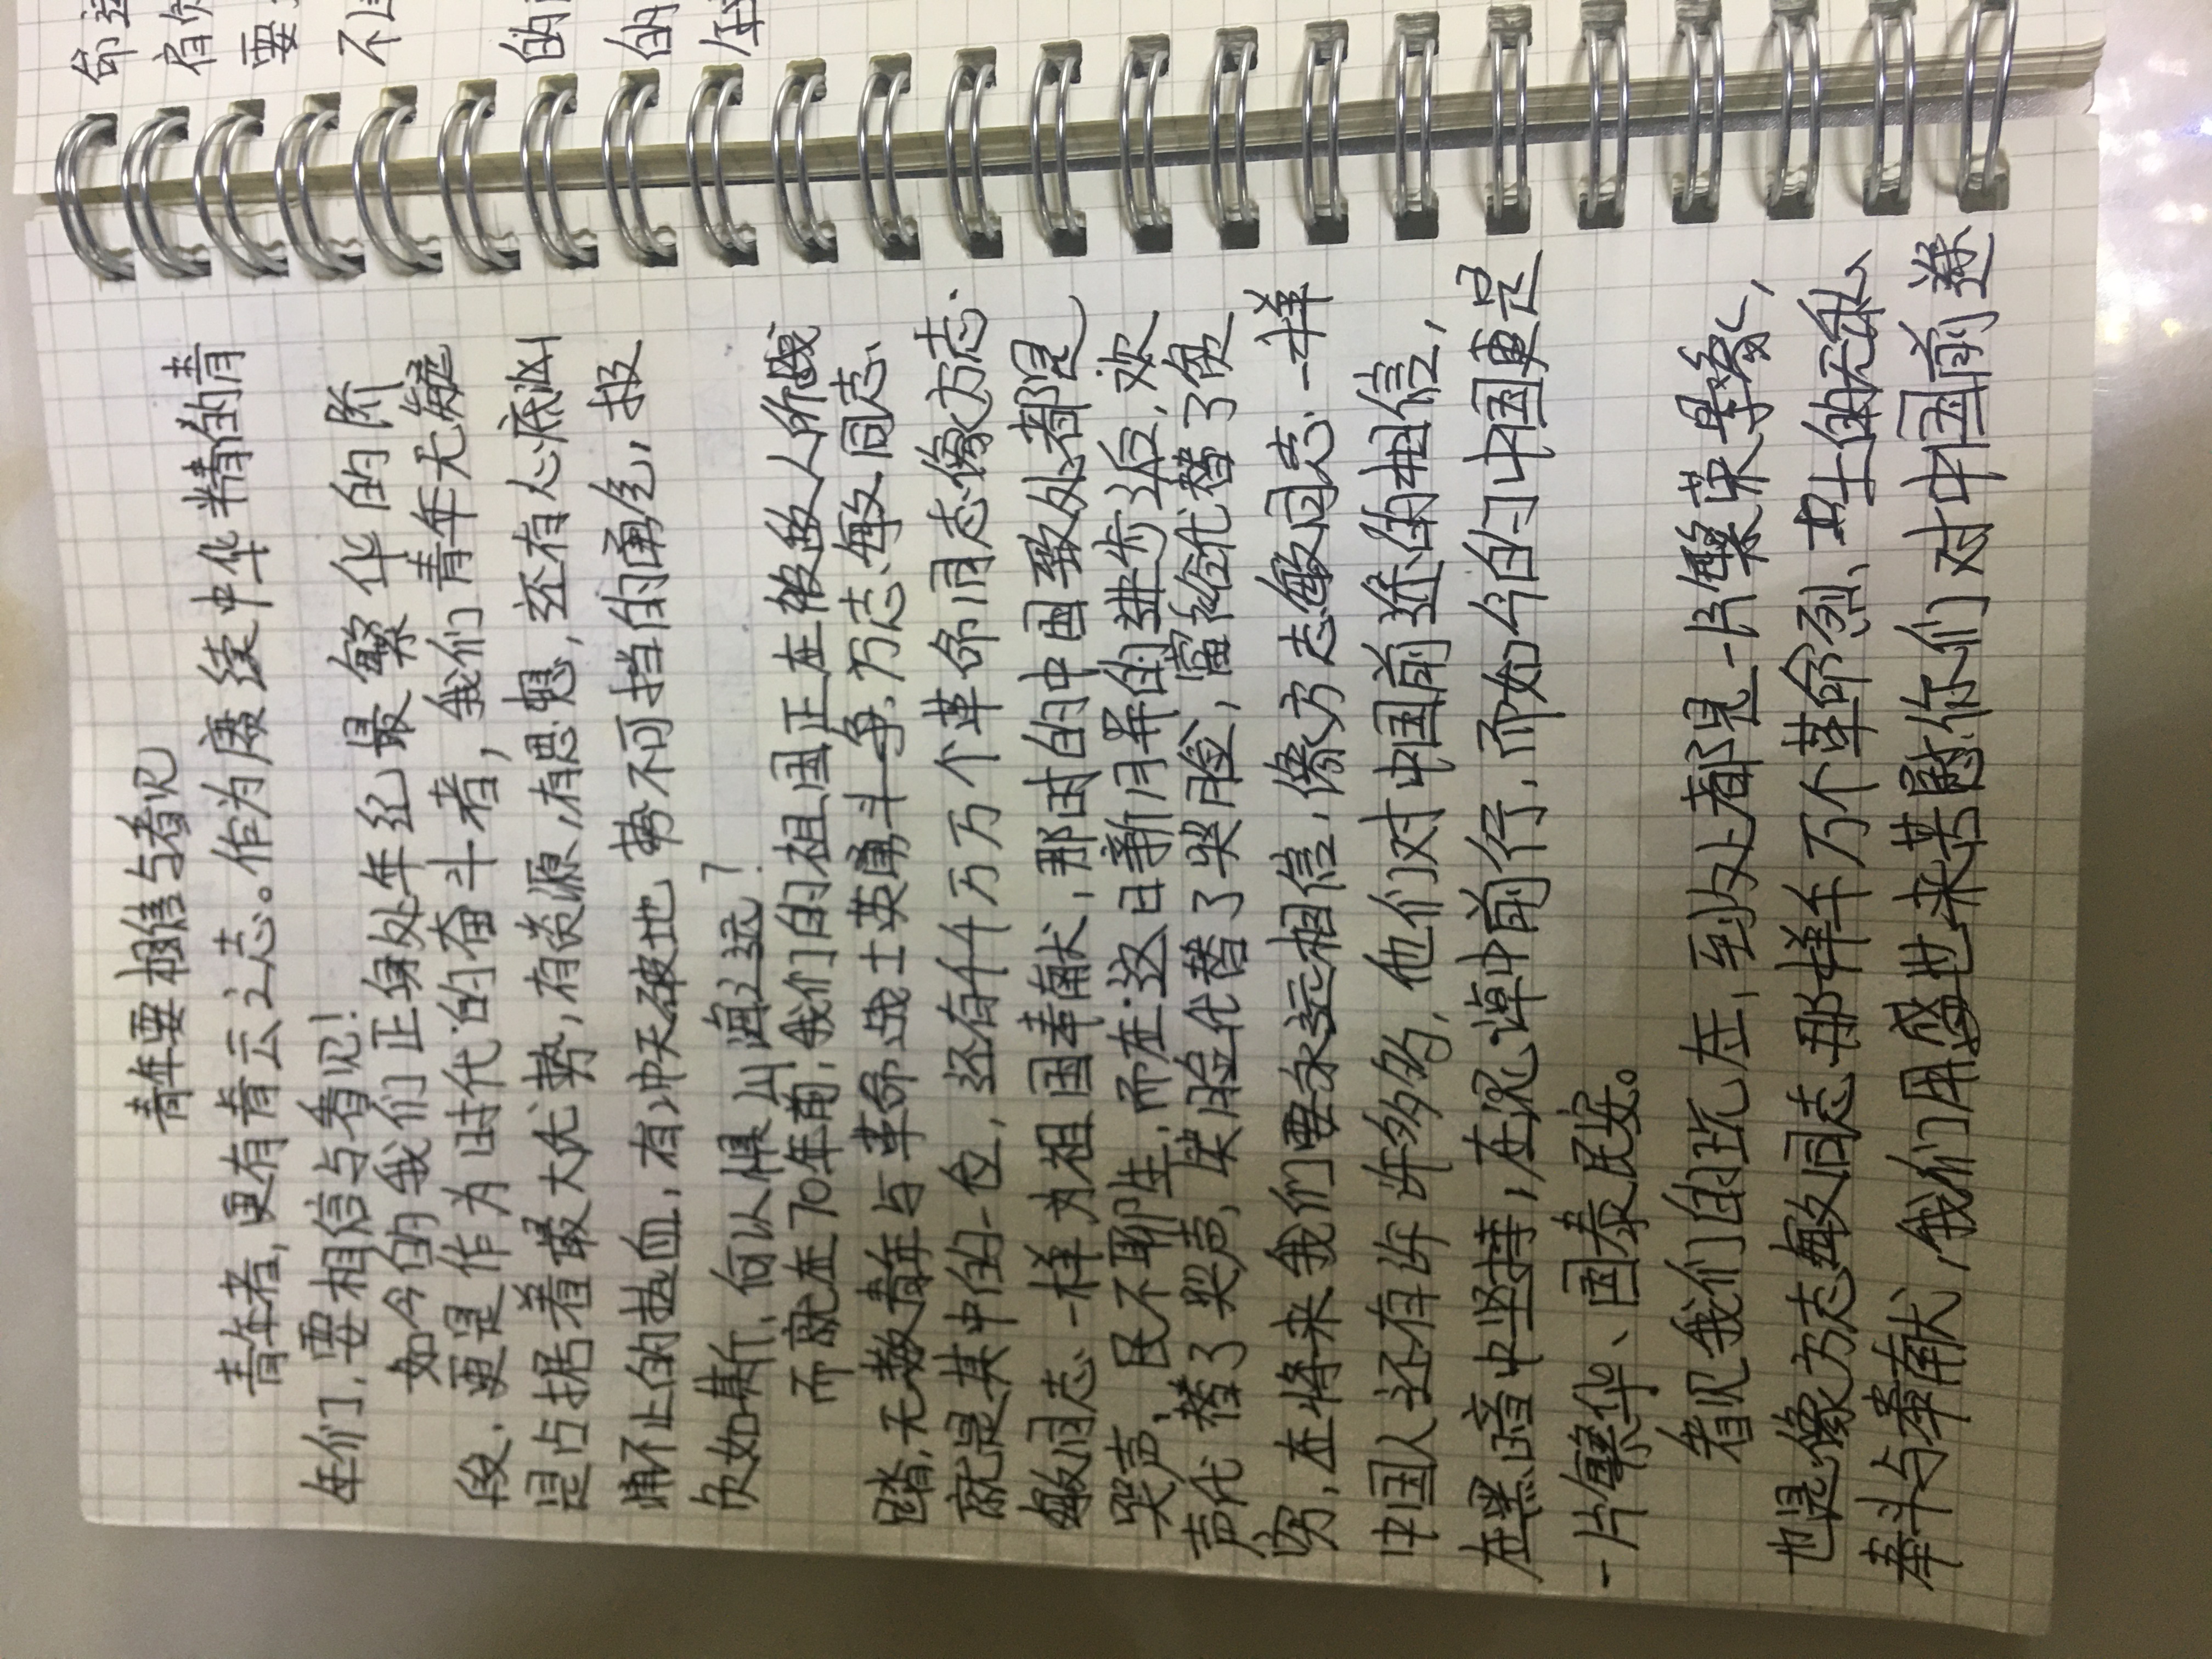 青年要相信与看见
青年者，更有青云之志。作为赓续中华精的青
年们，要相信与看见！
如今的我们正身处年纪最繁华的阶
段，更是作为时代的奋斗者，我们青年无疑
是占据着最大优势，有资源，有思想，还有心底汹
涌不止的热血，有冲天破地势不可挡的勇气，报
负如斯，何以惧山海之远？
而就在70年前，我们的祖国正在被敌人所践
踏，无数青年与革命战士英勇斗争，方志敏同志
就是其中的一位，还有千千万万个革命同志像方志
敏同志一样为祖国奉献，那时的中国到处都是
哭声，民不聊生，而在这日新月异的进步之后，欢
声代替了哭声，笑脸代替了哭脸，富裕代替了贫
穷，在将来我们要永远相信，像方志敏同志一样
中国人还有许许多多，他们对中国前途的相信，
在黑暗中坚持，在泥淖中前行，而如今的中国更是
一片繁华、国泰民安。
看见我们的现在，到处都是一片繁荣景象，
也是像方志敏同志那样千万个革命烈士的无私
奉斗与奉献，我们用盛世来告慰你们对中国前途
命
有
要
不
的
的
年